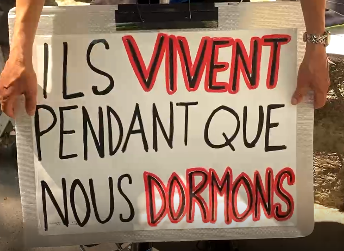 ILS VIVENT
PENDANT QUE
NOUS DORMONS